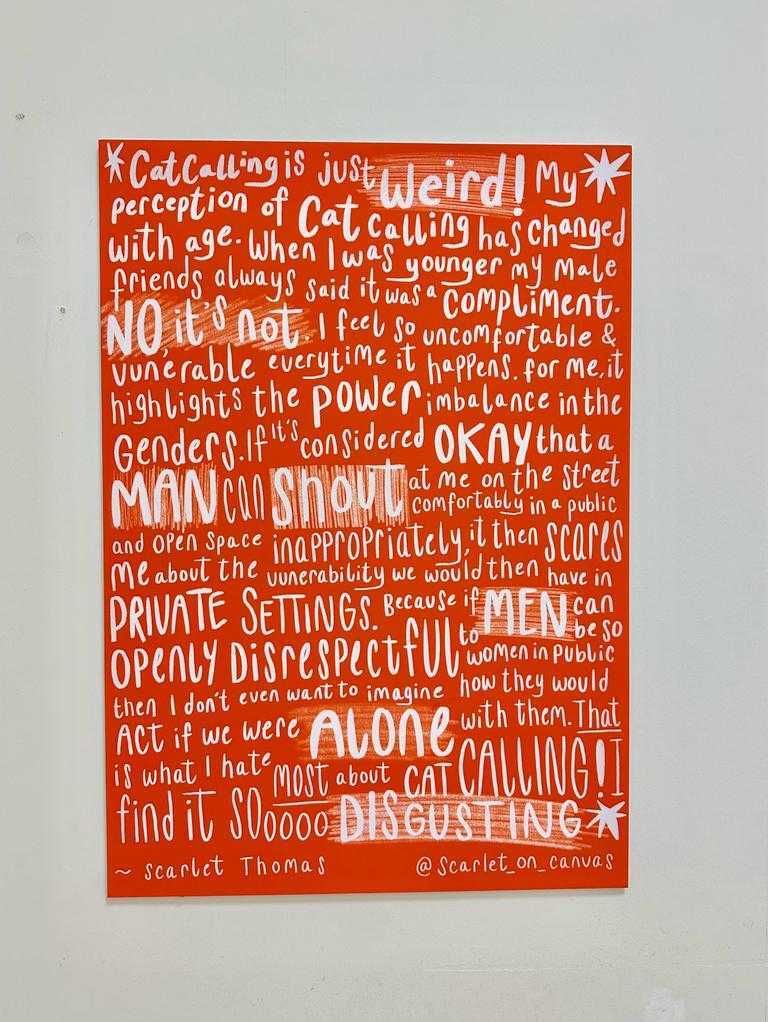 CatCalling is just Weird! My
perception of Cat Calling has changed
with age. When I was younger my Male
friends always said it was a compliment.
NO it's not. I feel so uncomfortable &
vunerable everytime it happens. for me, it
highlights the power imbalance in the
Genders. If it's considered OKAY that a
MAN can Shout at me on the street
comfortably in a public
and open space inappropriately, it then scares
me about the vunerability we would then have in
PRIVATE SETTINGS. Because if MEN can
be so
OPENLY DISRESPECTFUL to women in public
then I don't even want to imagine how they would
ACT if we were ALONE with them. That
is what I hate MOST about CAT CALLING! I
find it SOOOOO DISGUSTING
~ scarlet Thomas @scarlet_on_canvas